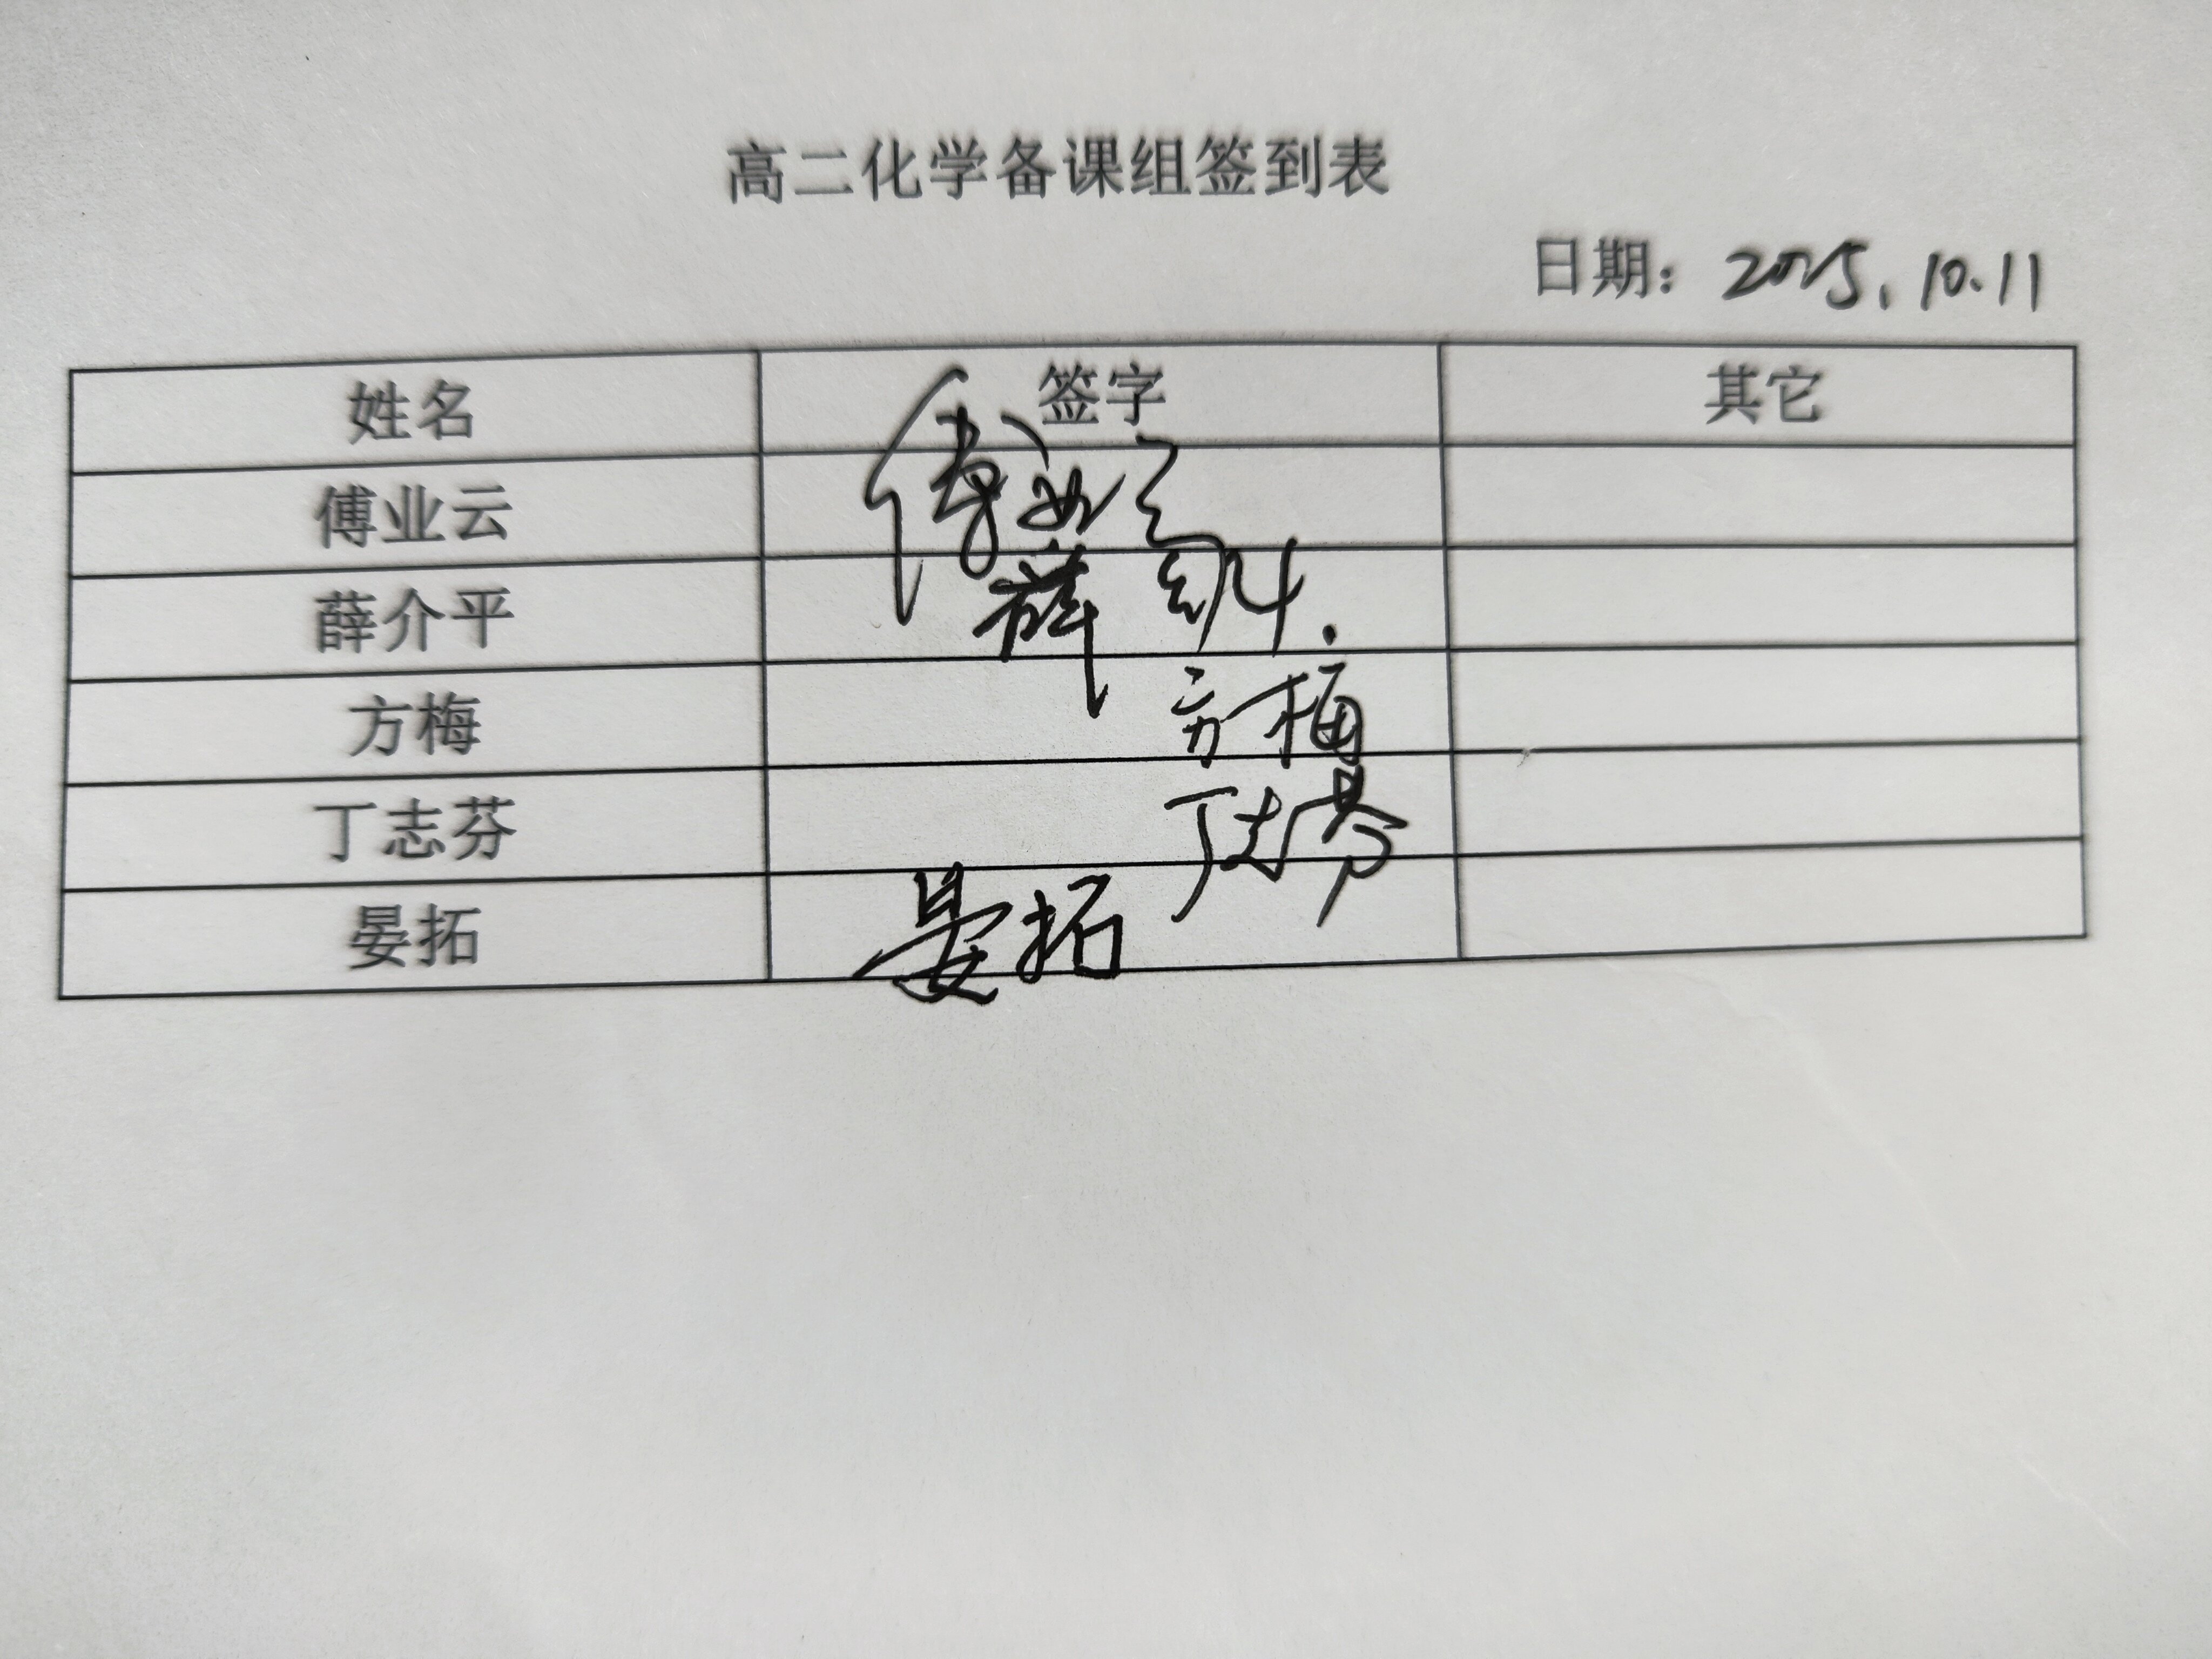 高二化学备课组签到表
日期：2025.10.11
姓名 签字 其它
傅业云 傅业云
薛介平 薛
方梅 方梅
丁志芬 丁志芬
晏拓 晏拓